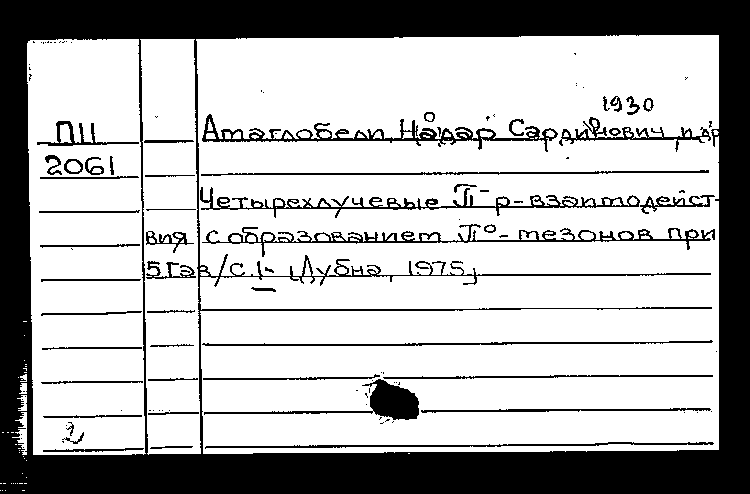 1930
П11 Амаглобели, Нодар Сардионович, и др
2061
Четырехлучевые π⁻p-взаимодейст-
вия с образованием π⁰-мезонов при
5 Гэв/с. 1- [Дубна, 1975]
2